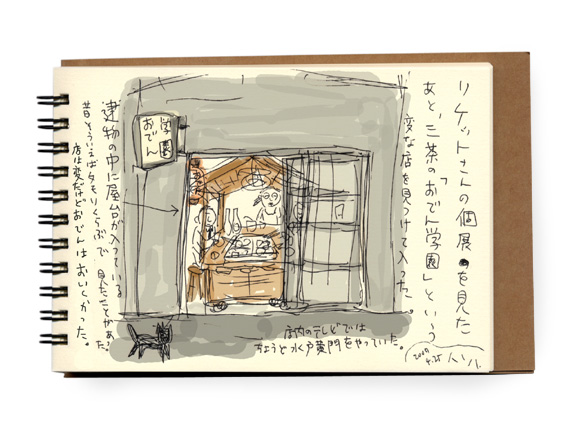 リケットさんの個展を見た
あと、三茶の「おでん学園」という
変な店を見つけて入った。
学園
おでん
建物の中に屋台が入っている
昔そういえばタモリくらぶで見たことがあった。
店は変だけどおでんはおいしかった。
店内のテレビでは
ちょうど水戸黄門をやっていた。
2007
4.25